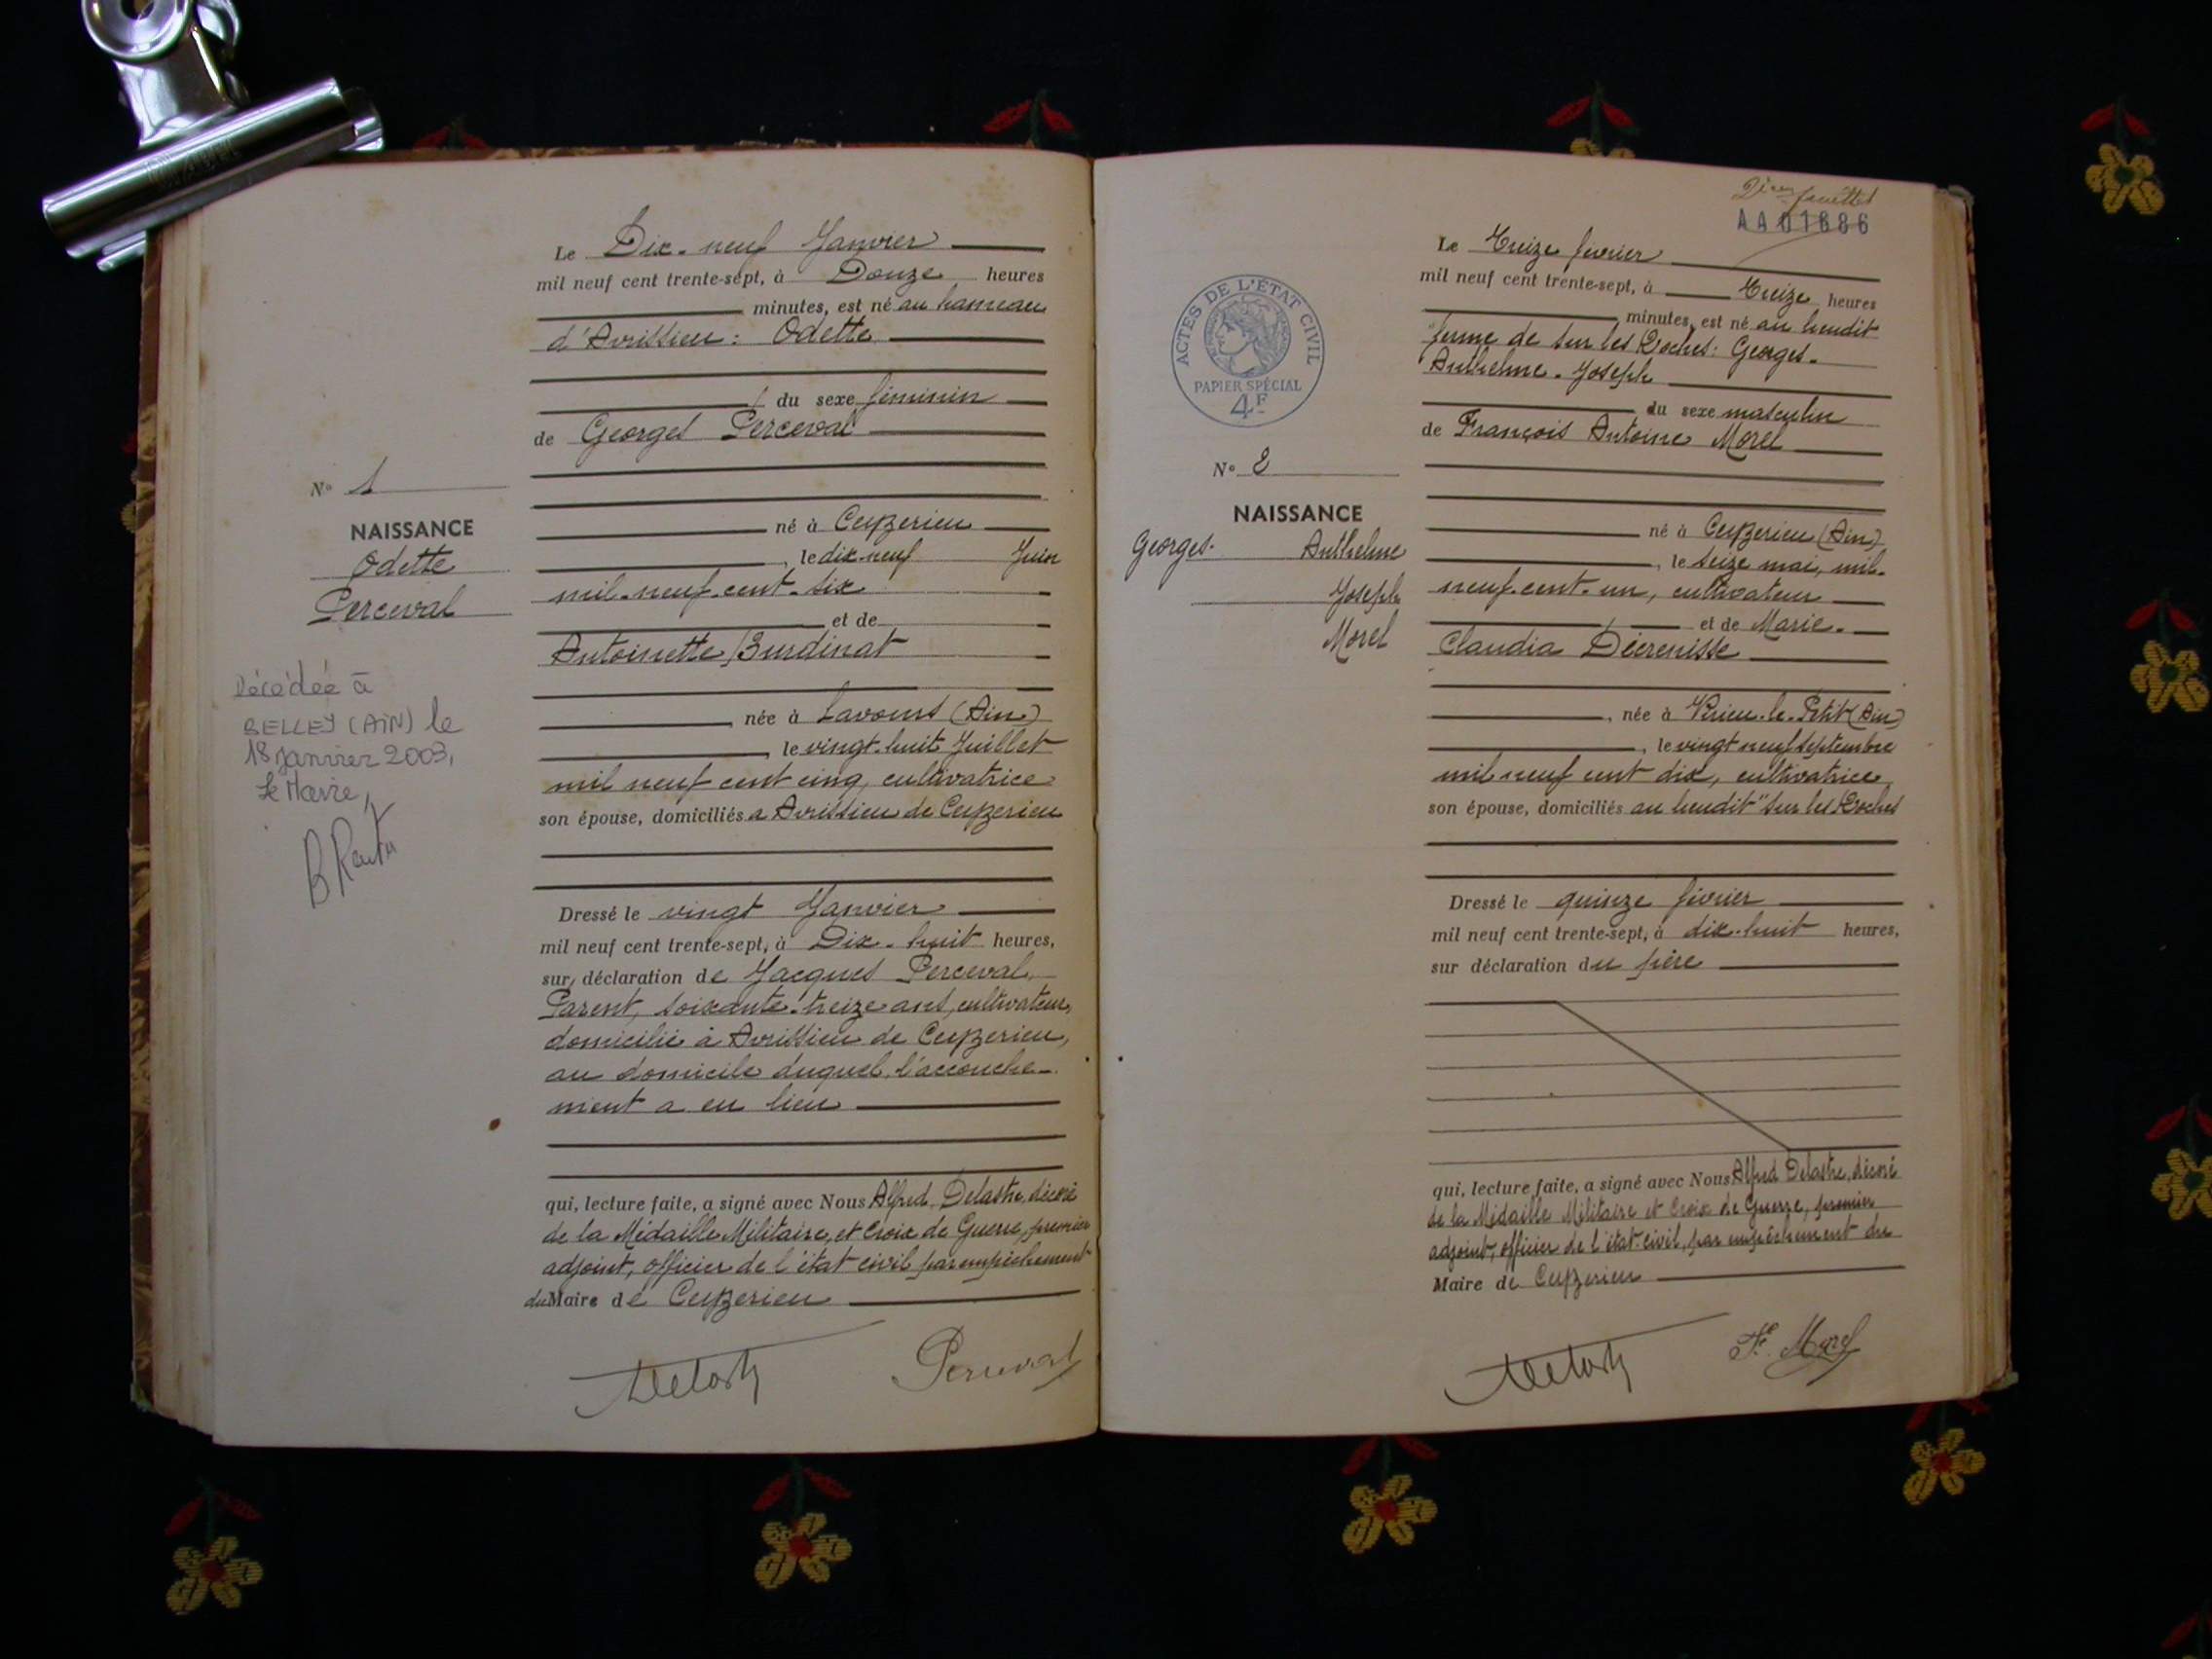 Le Dix-neuf Janvier
mil neuf cent trente-sept, à Douze heures
minutes, est né au hameau
d'Avrissieu : Odette
du sexe féminin
de Georges Perceval
né à Ceyzerieu
, le dix-neuf Juin
mil-neuf-cent-six
et de
Antoinette Burdinat
née à Lavours (Ain)
, le vingt-huit Juillet
mil neuf cent cinq, cultivatrice
son épouse, domiciliés à Avrissieu de Ceyzerieu
Dressé le vingt Janvier
mil neuf cent trente-sept, à Dix-huit heures,
sur déclaration de Jacques Perceval,
Parent, soixante-treize ans, cultivateur,
domicilié à Avrissieu de Ceyzerieu,
au domicile duquel l'accouche-
ment a eu lieu
qui, lecture faite, a signé avec Nous Alfred Delastre, décoré
de la Médaille Militaire, et Croix de Guerre, premier
adjoint, officier de l'état civil par empêchement
du Maire de Ceyzerieu
Perceval
N° 1
NAISSANCE
Odette
Perceval
Décédée à
BELLEY (AIN) le
18 janvier 2003,
Le Maire,
feuillet
AA01686
ACTES DE L'ÉTAT CIVIL
PAPIER SPÉCIAL
4F
N° 2
NAISSANCE
Georges- Anthelme
Joseph
Morel
Le Treize février
mil neuf cent trente-sept, à Treize heures
minutes, est né au lieudit
ferme de sur les Roches : Georges-
Anthelme-Joseph
du sexe masculin
de François Antoine Morel
né à Ceyzerieu (Ain)
, le seize mai, mil-
neuf-cent-un, cultivateur
et de Marie-
Claudia Décrenisse
, née à Virieu-le-Petit (Ain)
, le vingt neuf septembre
mil neuf cent dix, cultivatrice
son épouse, domiciliés au lieudit "Sur les Roches
Dressé le quinze février
mil neuf cent trente-sept, à dix-huit heures,
sur déclaration du père
qui, lecture faite, a signé avec Nous Alfred Delastre, décoré
de la Médaille Militaire et Croix de Guerre, premier
adjoint, officier de l'état-civil, par empêchement du
Maire de Ceyzerieu
F. Morel